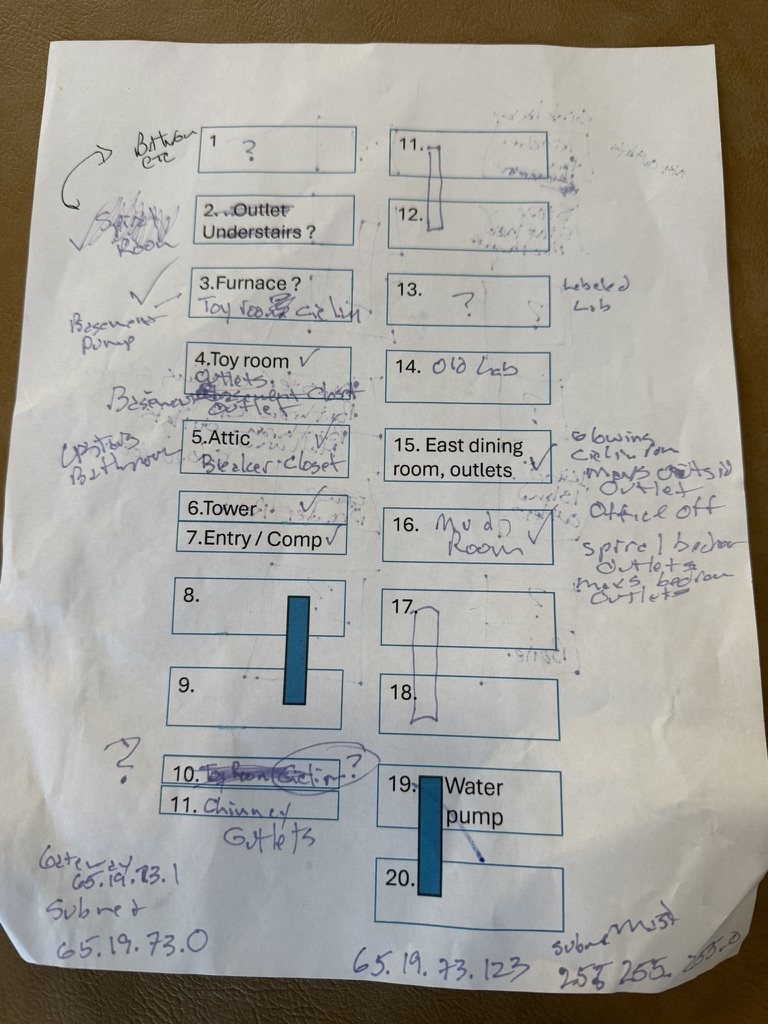 1
?
2. Outlet
Understairs ?
Room
3.Furnace ?
Toy room
Basement
Pump
4.Toy room ✓
Outlets
Basement closet
Outlet
5.Attic
Breaker Closet
Upstairs
Bathroom
6.Tower ✓
7.Entry / Comp ✓
8.
9.
?
10. Toy Room ?
11. Chimney
Outlets
11.
12.
13.
?
Labeled
Lab
14. Old Lab
15. East dining
room, outlets ✓
Glowing
Outlet
Office off
16. Mudd
Room ✓
spiral bedrom
outlets
maxs bedrom
outlets
17.
18.
19. Water
pump
20.
Gateway
65.19.73.1
Subnet
65.19.73.0
65.19.73.123
255 255. 255.0